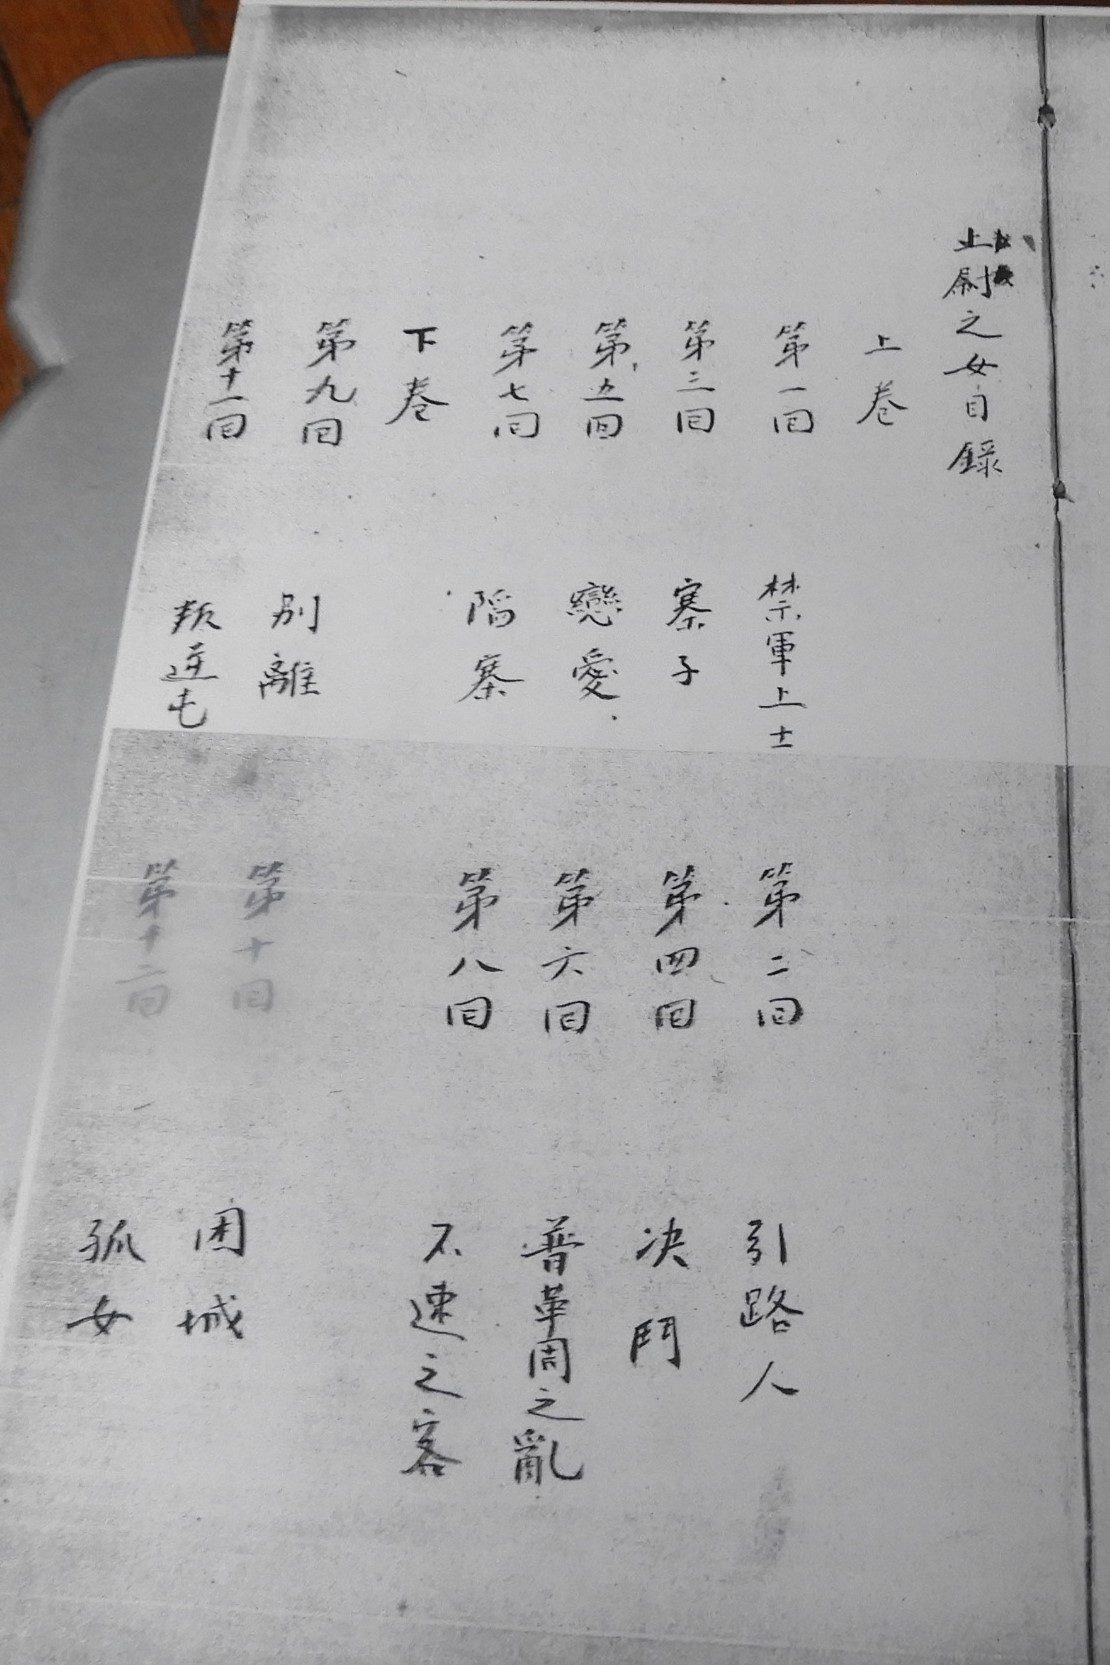 上尉之女目錄
上卷
第一回 禁軍上士 第二回 引路人
第三回 寨子 第四回 决鬥
第五回 戀愛 第六回 普革周之亂
第七回 陷寨 第八回 不速之客
下卷
第九回 别離 第十回 困城
第十一回 叛逆屯 第十二回 孤女